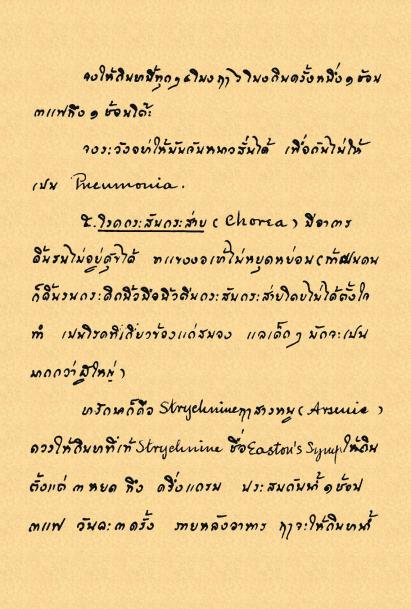 จงให้กินยานี้ทุกๆ ๔ โมง ฤๅ ๖ โมงกินครั้งหนึ่ง ๑ ช้อน
กาแฟถึง ๑ ช้อนโต๊ะ
จงระวังอย่าให้มันจับหนาวสั่นได้ เพื่อกันไม่ให้
เปน Pneumonia.
๕. โรคกระสับกระส่าย (Chorea) มีอาการ
ดิ้นรนไม่อยู่สุขได้ แขงงอเท้าไม่หยุดหย่อน
ก็ดิ้นรนกระดิกนิ้วมือนิ้วตีนกระสับกระส่ายโดยไม่ได้ตั้งใจ
ทำ เปนโรคที่เกี่ยวข้องแก่สมอง แลเด็กๆ มักจะเปน
มากกว่าผู้ใหญ่
ยารักษาก็คือ Strychnine ฤๅสารหนู (Arsenic)
ควรให้กินยาที่เข้า Strychnine ชื่อ Easton's Syrup ให้กิน
ตั้งแต่ ๓ หยด ถึง ครึ่งแดรม ประสมกับน้ำ ๑ ช้อน
กาแฟ วันละ ๓ ครั้ง ภายหลังอาหาร ฤๅจะให้กินยาน้ำ